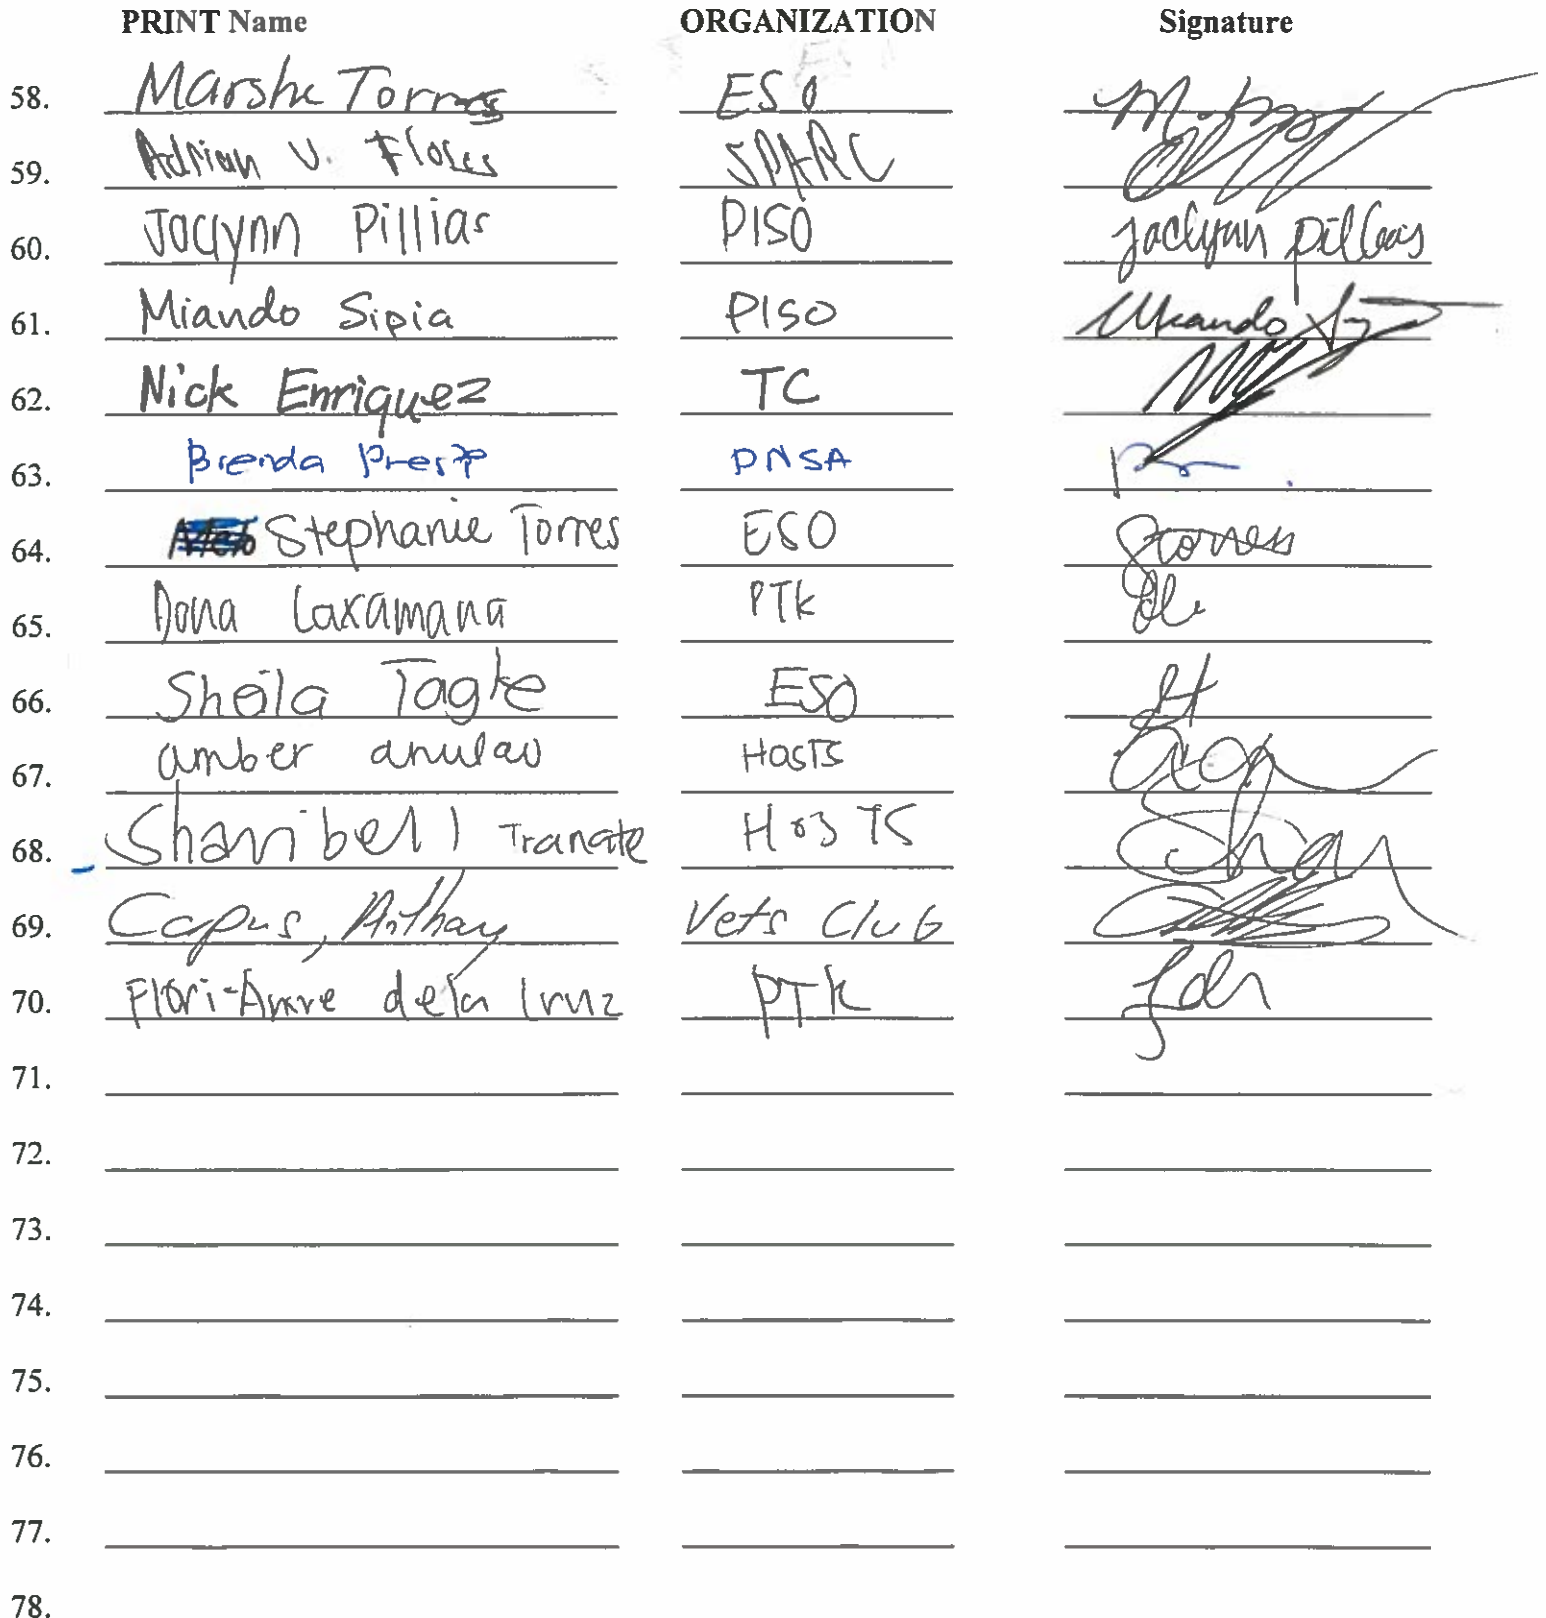 PRINT Name ORGANIZATION Signature
58. Marsha Torres ESO
59. Adrian V. Flores SPARC
60. Joclynn Pillias PISO Joclynn Pillias
61. Miando Sipia PISO Miando
62. Nick Enriquez TC
63. Brenda PNSA
64. Stephanie Torres ESO Storres
65. Dona Laxamana PTK
66. Sheila Tagle ESO
67. amber anulao HOSTS
68. Sharibell Tranate HOSTS Shar
69. Capus, Anthony Vets Club
70. Flori-Anne dela Cruz PTK
71.
72.
73.
74.
75.
76.
77.
78.